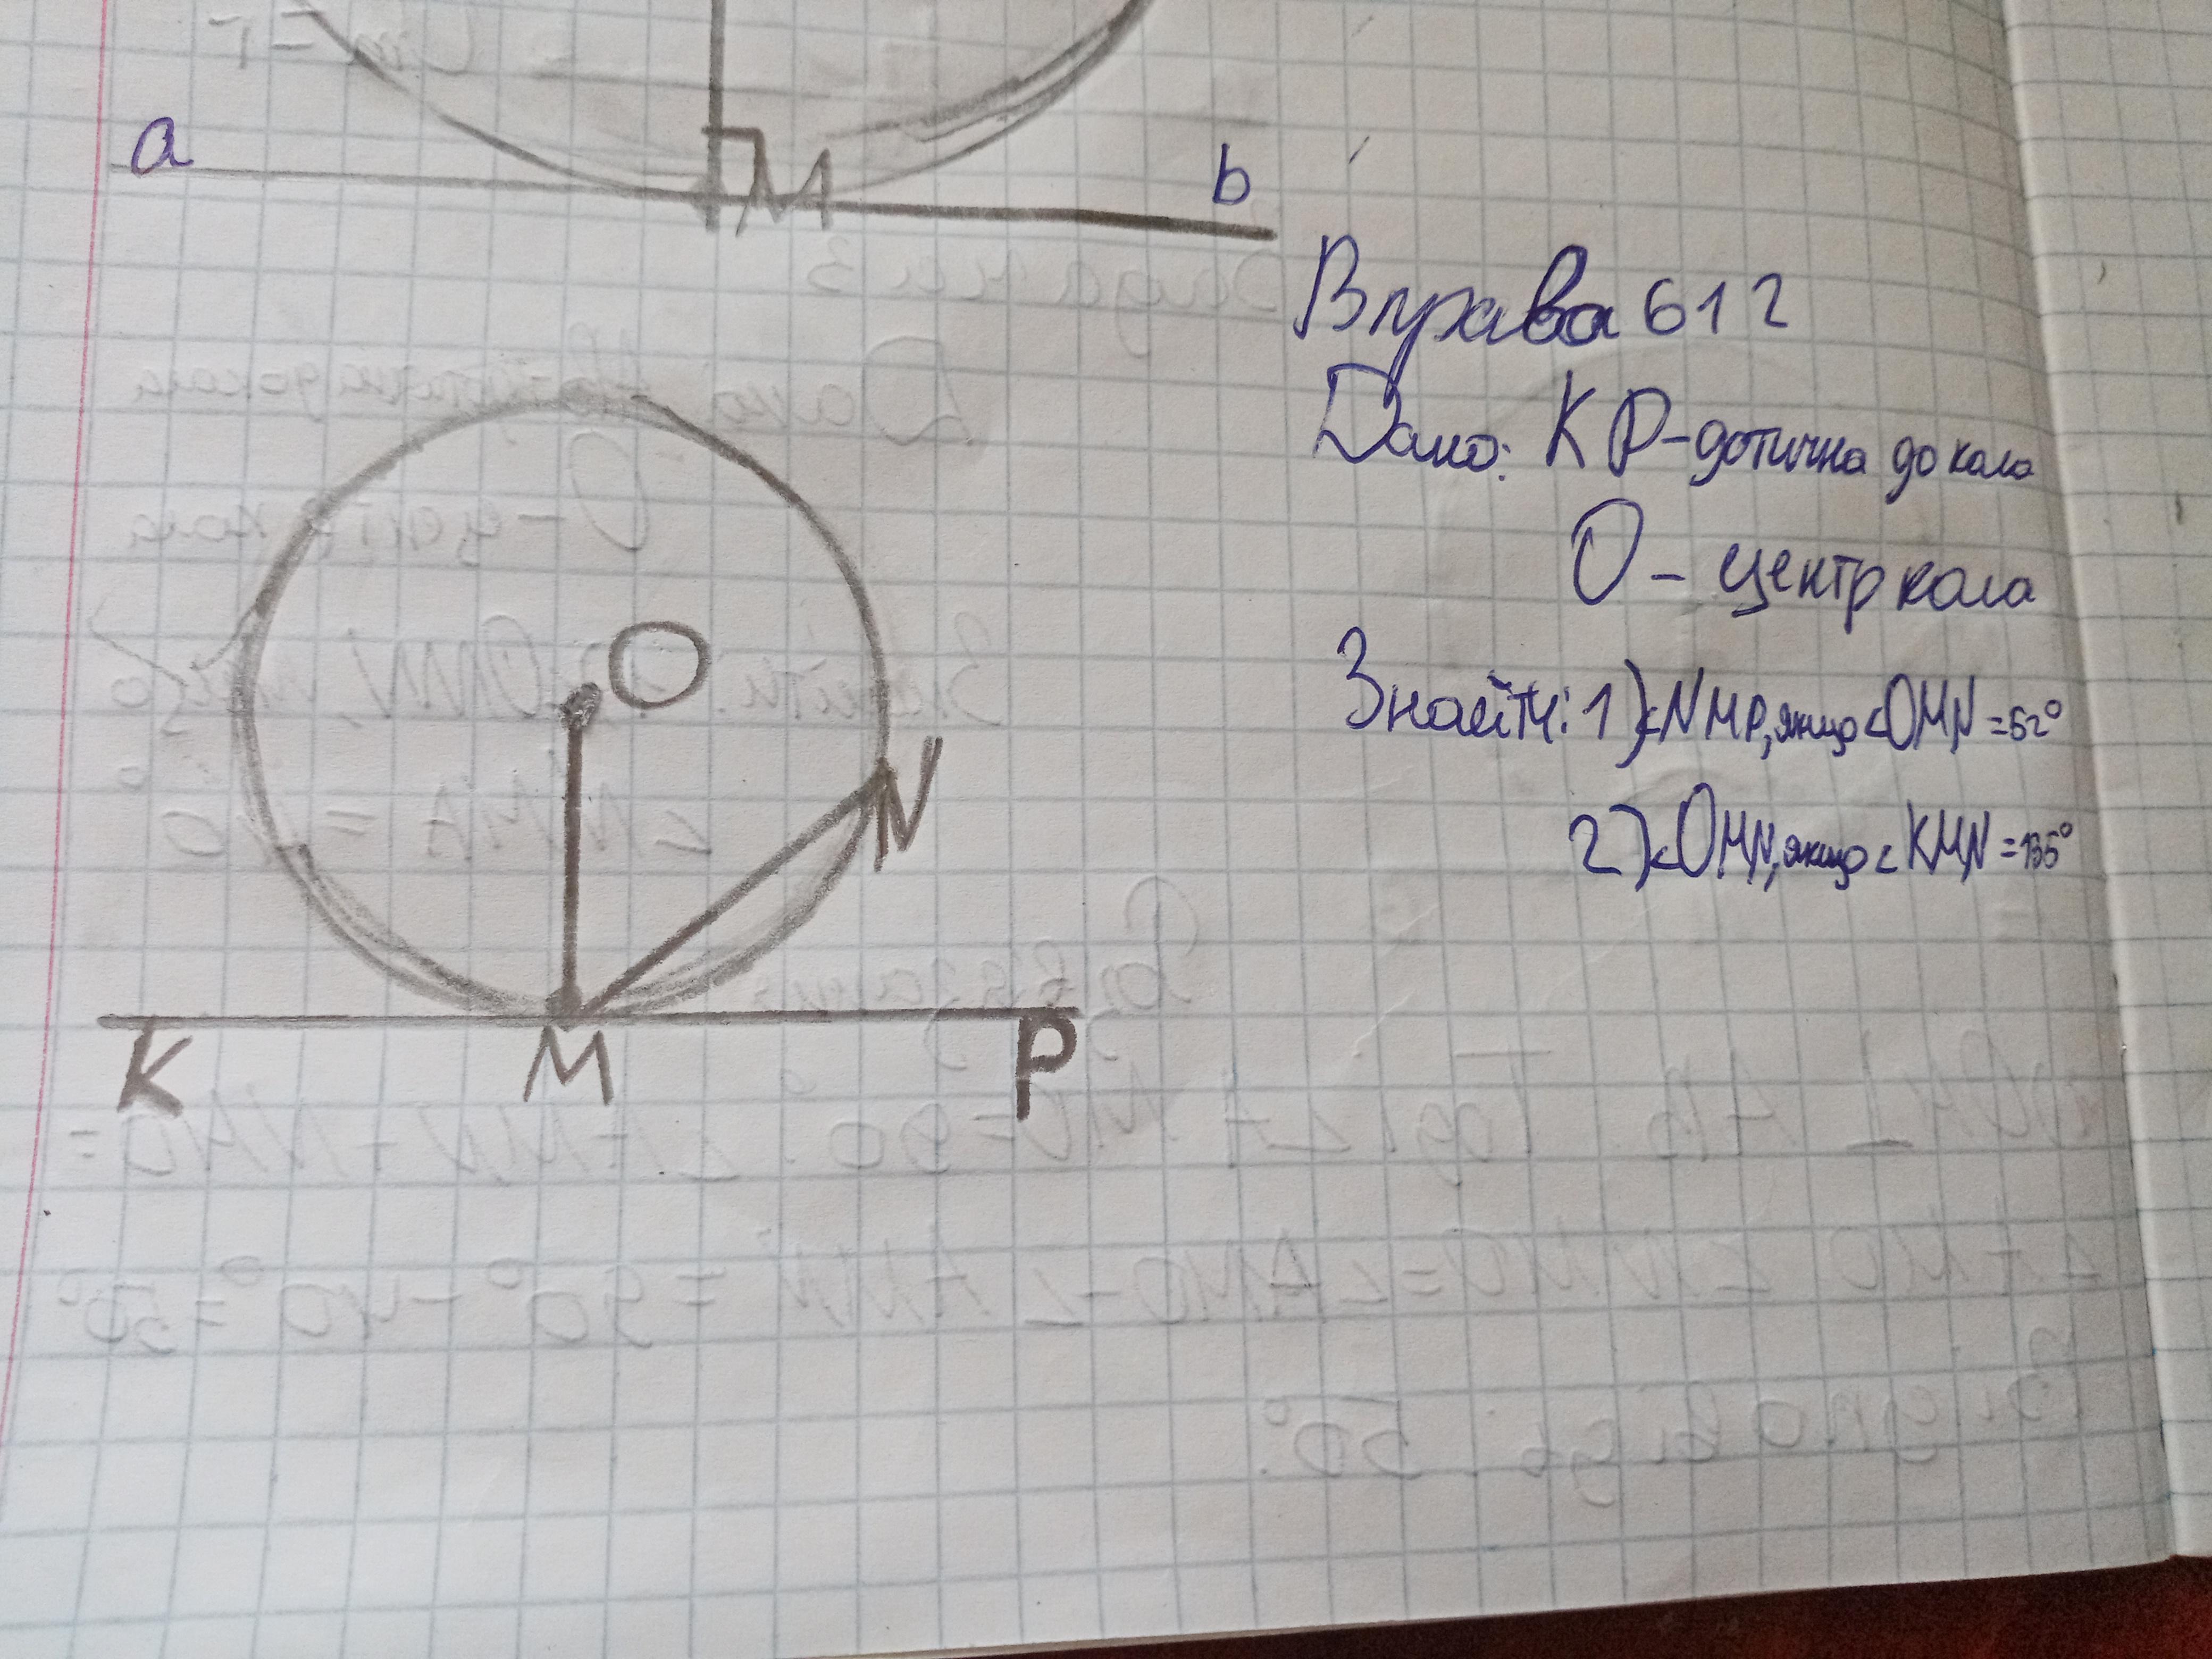 a
M
b
Вправа 612
Дано: KP-дотична до кола
O - центр кола
Знайти: 1) <NMP, якщо <OMN = 52°
2) <OMN, якщо < KMN = 135°
O
N
K
M
P